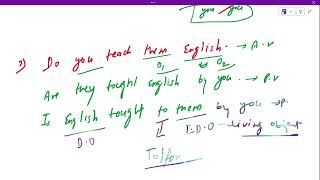 you you
7) Do you teach them English. → A.v
O₁ O₂
Are they tought English by you → P.v
Is English tought to them by you → P.
D.O I.D.O - living object
To/for